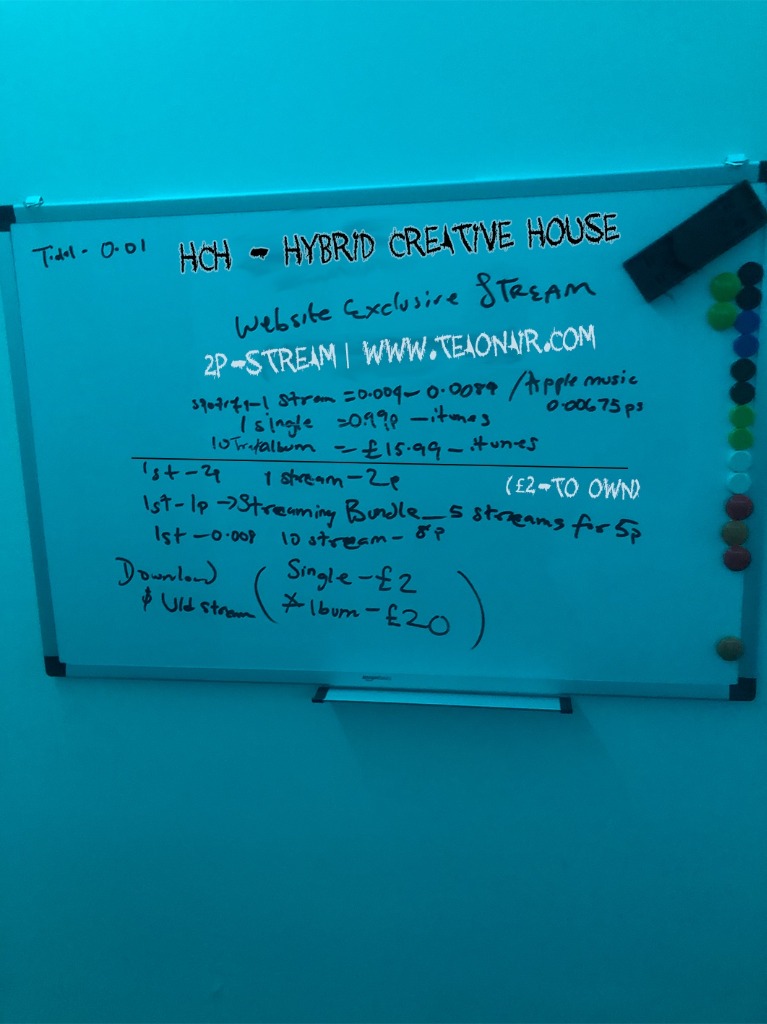 Tidal - 0.01
HCH - HYBRID CREATIVE HOUSE
Website Exclusive STREAM
2P-STREAM | WWW.TEAONAIR.COM
spotify-1 Stream = 0.004 - 0.0084 / Apple music
0.00675 ps
1 single = 0.99p - itunes
10 Track album = £15.99 - itunes
1st - 2p 1 stream - 2p
(£2-TO OWN)
1st - 1p → Streaming Bundle - 5 streams for 5p
1st - 0.008 10 stream - 8p
Download
$ Uld stream
( Single - £2
Album - £20 )